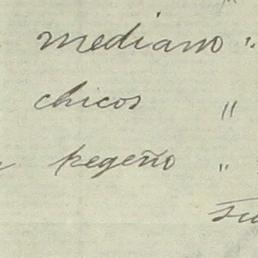 mediano "
chicos "
pegeño "